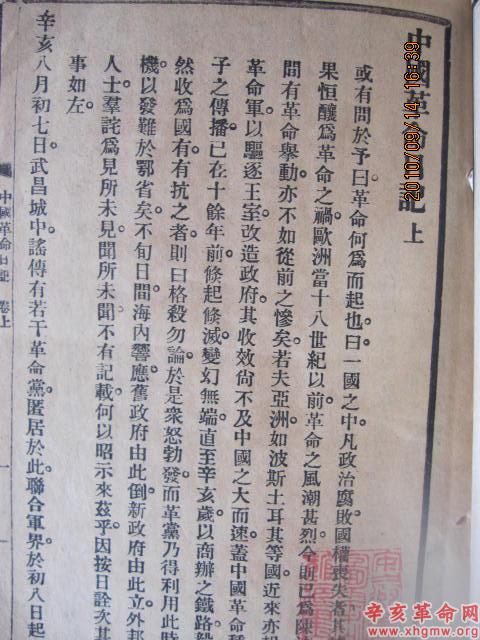 中國革命日記 上
或有問於予曰革命何爲而起也曰一國之中凡政治腐敗國權喪失者其
果恒釀爲革命之禍歐洲當十八世紀以前革命之風潮甚烈今則已爲陳
間有革命舉動亦不如從前之慘矣若夫亞洲如波斯土耳其等國近來亦
革命軍以驅逐王室改造政府其收效尙不及中國之大而速蓋中國革命
子之傳播已在十餘年前倏起倏滅變幻無端直至辛亥歲以商辦之鐵路
然收爲國有有抗之者則曰格殺勿論於是衆怒勃發而革黨乃得利用此時
機以發難於鄂省矣不旬日間海內響應舊政府由此倒新政府由此立外邦
人士羣詫爲見所未見聞所未聞不有記載何以昭示來茲乎因按日詮次其
事如左
辛亥八月初七日武昌城中謠傳有若干革命黨匿居於此聯合軍界於初八日起
中國革命日記 卷上 一
2010/09/14 16:39
辛亥革命网
www.xhgmw.org